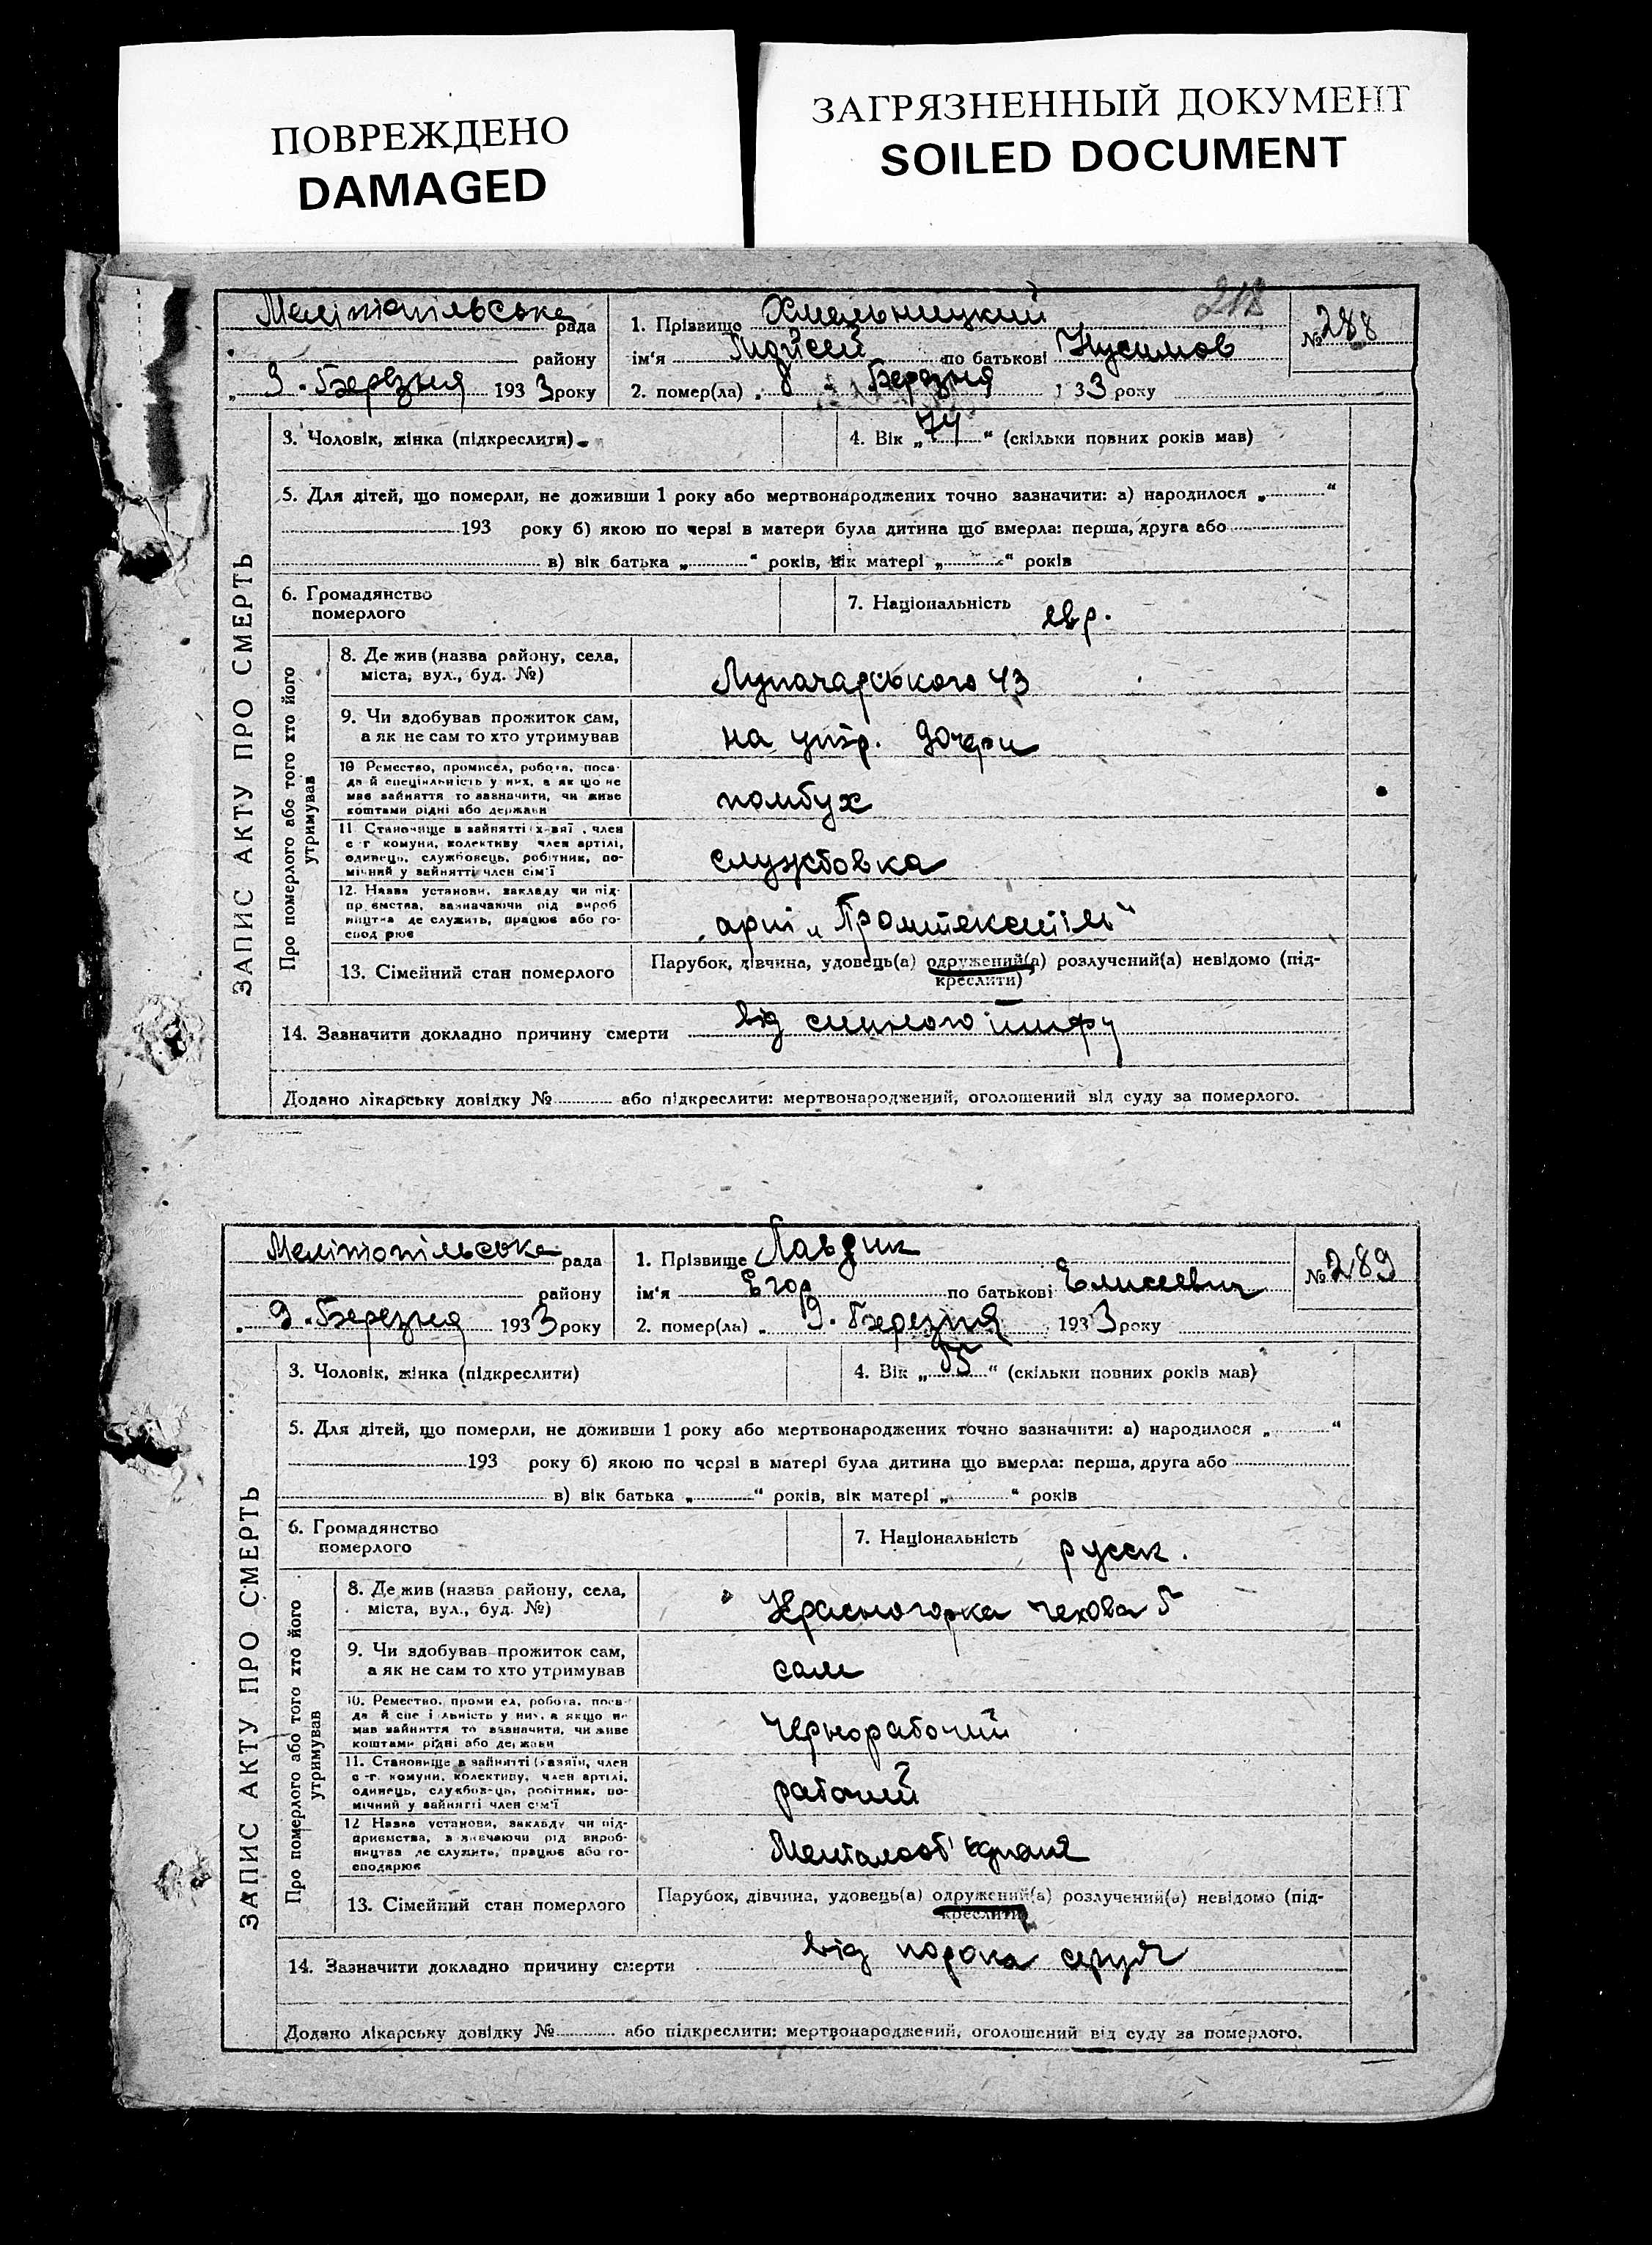 ПОВРЕЖДЕНО
DAMAGED
ЗАГРЯЗНЕННЫЙ ДОКУМЕНТ
SOILED DOCUMENT
218
Мелітопільська рада
району
„ 9 . Березня 1933 року
1. Прізвище Хмельницкий
ім'я Мойсей по батькові Нусимов
2. помер(ла) „ 8 " Березня 133 року
№ 288
ЗАПИС АКТУ ПРО СМЕРТЬ
3. Чоловік, жінка (підкреслити)
4. Вік „ 74 “ (скільки повних років мав)
5. Для дітей, що померли, не доживши 1 року або мертвонароджених точно зазначити: а) народилося „ “
193 року б) якою по черзі в матери була дитина що вмерла: перша, друга або
в) вік батька „ “ років, вік матері „ “ років
6. Громадянство
померлого
7. Національність евр.
Про померлого або того хто його
утримував
8. Де жив (назва району, села,
міста, вул., буд. №)
Луначарського 43
9. Чи здобував прожиток сам,
а як не сам то хто утримував
на утр. дочери
10 Ремество, промисел, робота, поса-
да й спеціяльність у них, а як що не
мав зайняття то зазначити, чи живе
коштами рідні або держави
помбух
11 Становище в зайнятті х-зяї , член
с г комуни, колективу член артілі,
одинець, службовець, робітник, по-
мічний у зайнятті член сім'ї
службовка
12. Назва установи, закладу чи під-
пр ємства, зазначаючи рід вироб
ництва де служить, працює або го-
спод рює
арті „Промтекстіль“
13. Сімейний стан померлого
Парубок, дівчина, удовець(а) одружений(а) розлучений(а) невідомо (під-
креслити)
14. Зазначити докладно причину смерти від сипного тифу
Додано лікарську довідку № або підкреслити: мертвонароджений, оголошений від суду за померлого.
Мелітопільська рада
району
„ 9 . Березня 1933 року
1. Прізвище Лавдик
ім'я Егор по батькові Елисеевич
2. помер(ла) „ 9 . Березня 1933 року
№ 289
ЗАПИС АКТУ ПРО СМЕРТЬ
3. Чоловік, жінка (підкреслити)
4. Вік „ “ (скільки повних років мав)
5. Для дітей, що померли, не доживши 1 року або мертвонароджених точно зазначити: а) народилося „ “
193 року б) якою по черзі в матері була дитина що вмерла: перша, друга або
в) вік батька „ “ років, вік матері „ “ років
6. Громадянство
померлого
7. Національність русск.
Про померлого або того хто його
утримував
8. Де жив (назва району, села,
міста, вул., буд. №)
Красногорка Чехова 5
9. Чи здобував прожиток сам,
а як не сам то хто утримував
сам
10. Ремество, проми ел, робота, поса-
да й спе і льність у них, а якщо не
мав зайняття то зазначити, чи живе
коштами рідні або держави
Чернорабочий
11. Становище в зайнятті (хазяїн, член
с -г. комуни, колективу, член артілі,
одинець, службовець, робітник, по-
мічний у зайнятті член сім'ї
рабочий
12 Назва установи, закладу чи під-
приємства, зазначаючи рід вироб-
ництва де служить, працює або го-
сподарює
Металооб'єднаня
13. Сімейний стан померлого
Парубок, дівчина, удовець(а) одружений(а) розлучений(а) невідомо (під-
креслити)
14. Зазначити докладно причину смерти від порока серця
Додано лікарську довідку № або підкреслити: мертвонароджений, оголошений від суду за померлого.